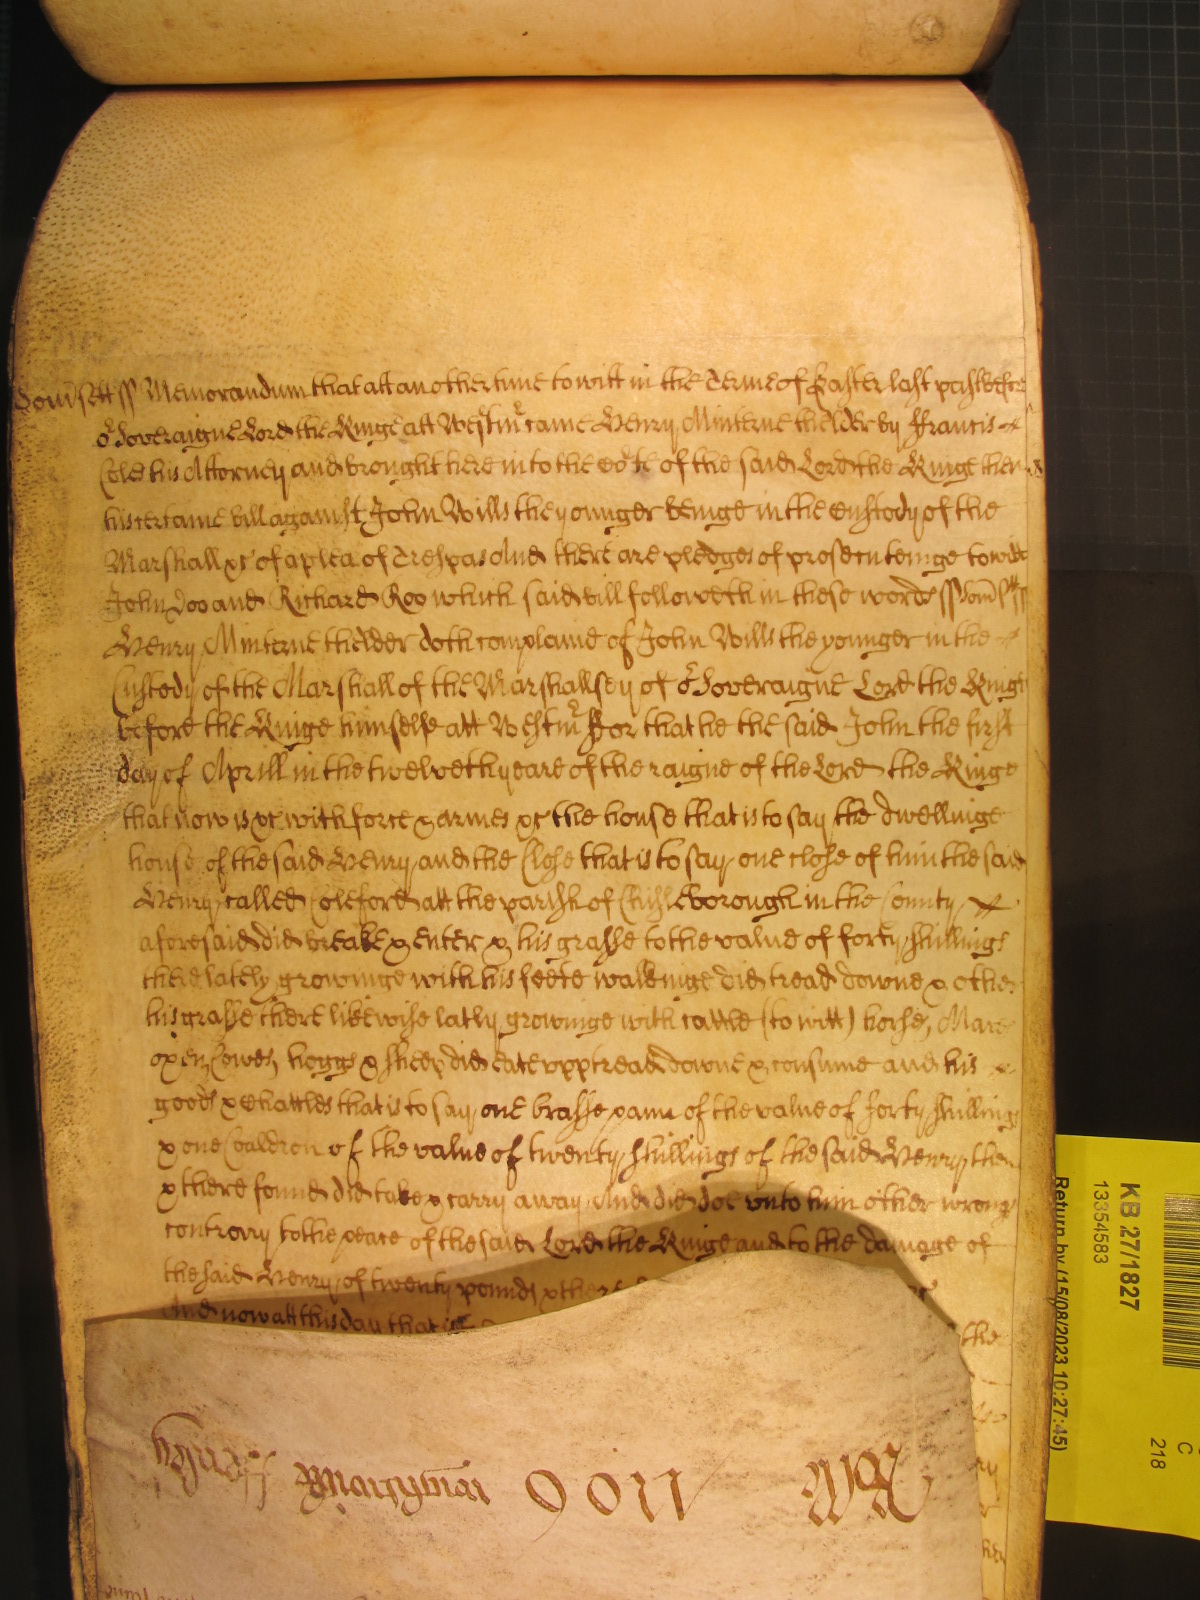 Som̃sett ss Memorandum that att an other time to witt in the Terme of Easter last past before
or Soveraigne Lord the Kinge att Westmr came Henry Minterne thelder by Francis
Coles his Attorney and brought here into the Cort of the said Lord the Kinge then
his certaine bill against John Wills the younger beinge in the Custody of the
Marshall &c of a plea of Trespas And there are pledges of prosecuteinge to witt
John Doo and Richard Roo which said bill followeth in these words ss Som̃sett ss
Henry Minterne thelder doth complaine of John Wills the younger in the
Custody of the Marshall of the Marshallsey of or Soveraigne Lord the Kinge
before the Kinge himselfe att Westmr For that he the said John the first
day of Aprill in the twelveth yeare of the raigne of the Lord the Kinge
that now is &c with force & armes &c the house that is to say the dwellinge
house of the said Henry and the Close that is to say one close of him the said
Henry called Coleford att the parish of Chisleborough in the County
aforesaid did breake & enter & his grasse to the value of forty shillings
there lately growinge with his feete walkinge did tread downe & other
his grasse there likewise latly growinge with cattle (to witt) horses, Mares
oxen, Cowes, hoggs & sheep did eate upp tread downe & consume and his
goods & Chattles that is to say one brasse pann of the value of forty shillings
& one Caldron of the value of twenty shillings of the said Henry then
& there found did take & carry away And did doe unto him other wrongs
contrary to the peace of the said Lord the Kinge and to the damage of
the said Henry of twenty pounds & there
And now att this day that is
the
KB 27/1827
13354583
Return by (15/08/2023 10:27:45)
C
218